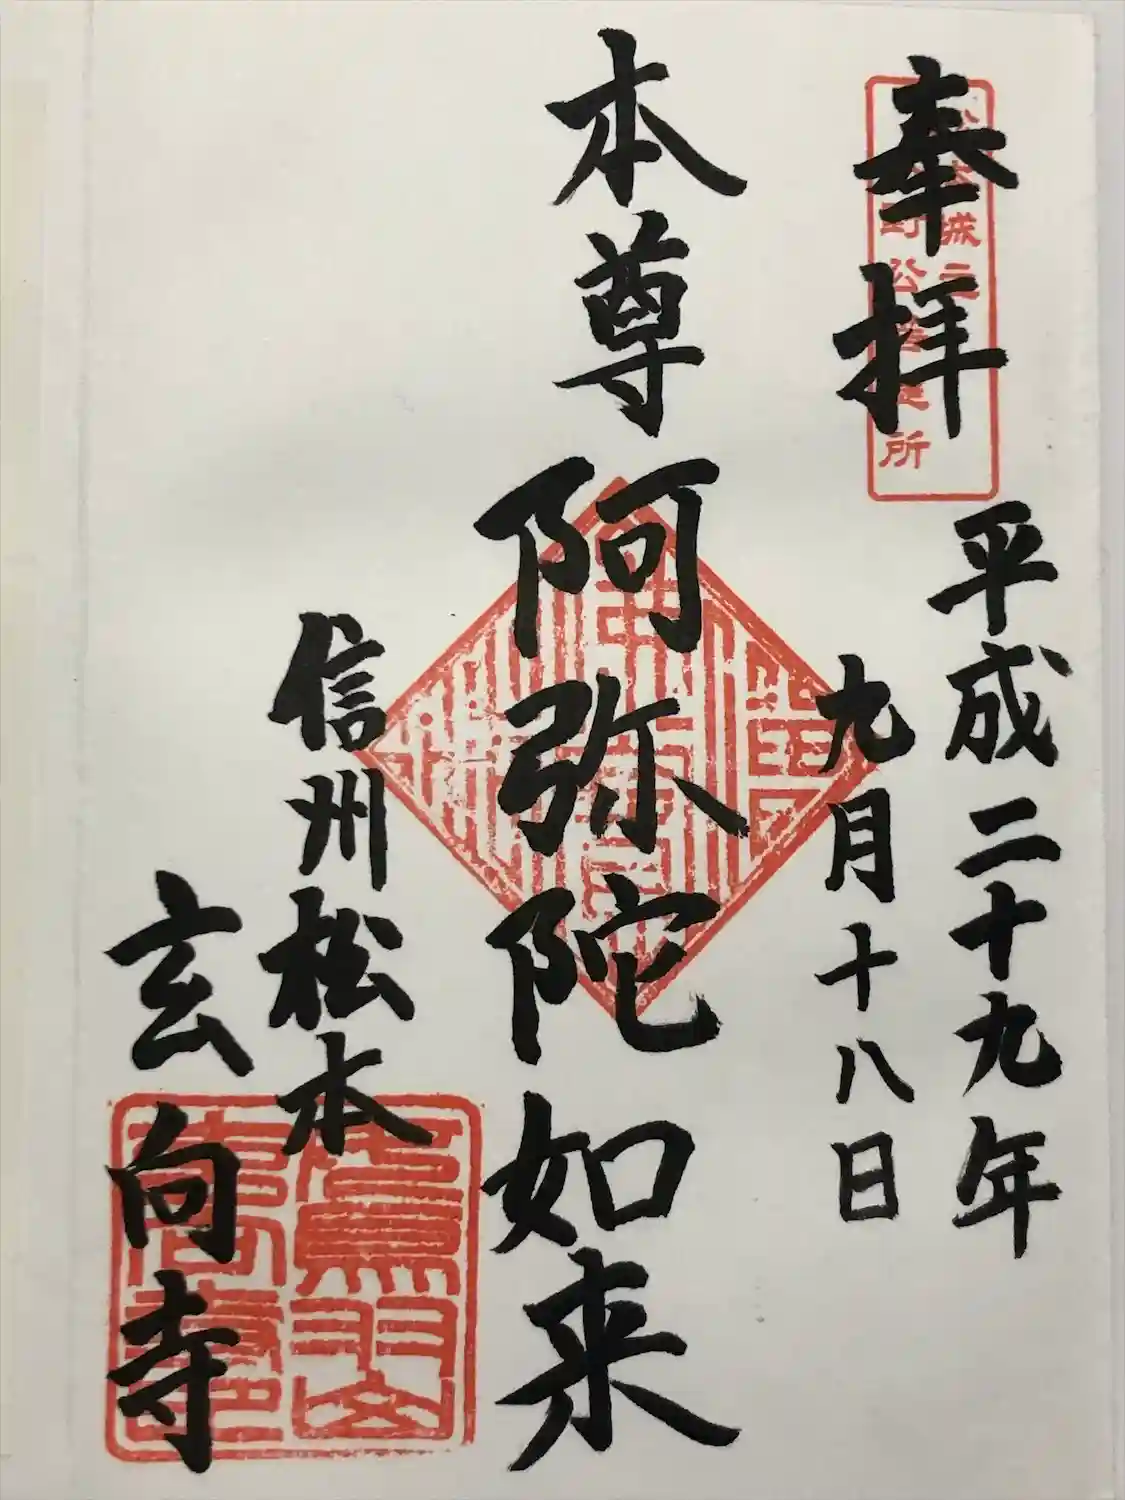 奉拝
平成二十九年
九月十八日
本尊阿弥陀如来
信州松本
玄向寺